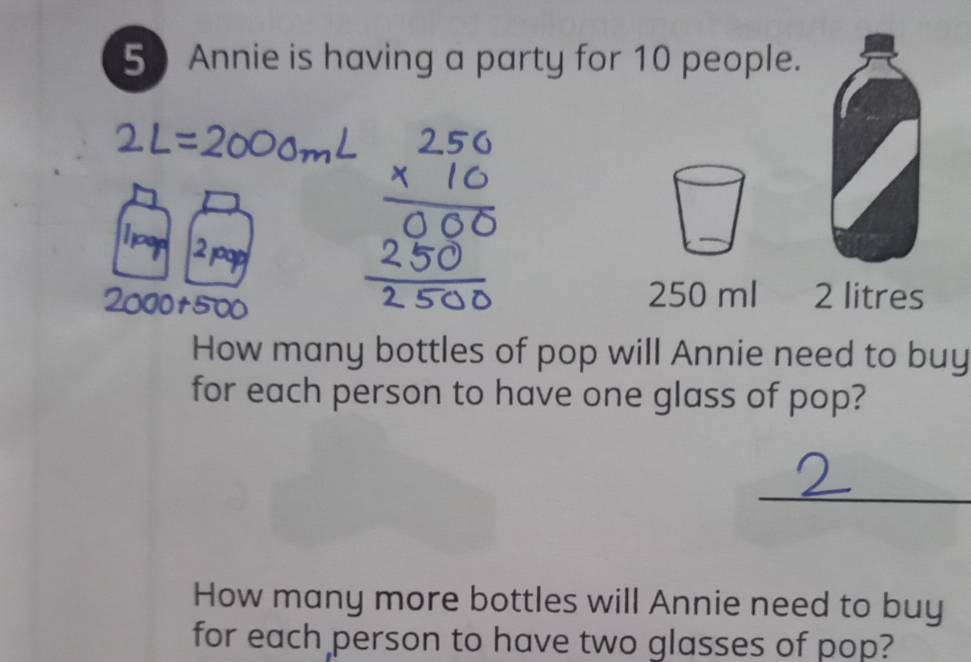 5 Annie is having a party for 10 people.
2L=2000mL
250
x 10
000
250
2500
1pop 2pop
2000+500
250 ml 2 litres
How many bottles of pop will Annie need to buy
for each person to have one glass of pop?
2
How many more bottles will Annie need to buy
for each person to have two glasses of pop?